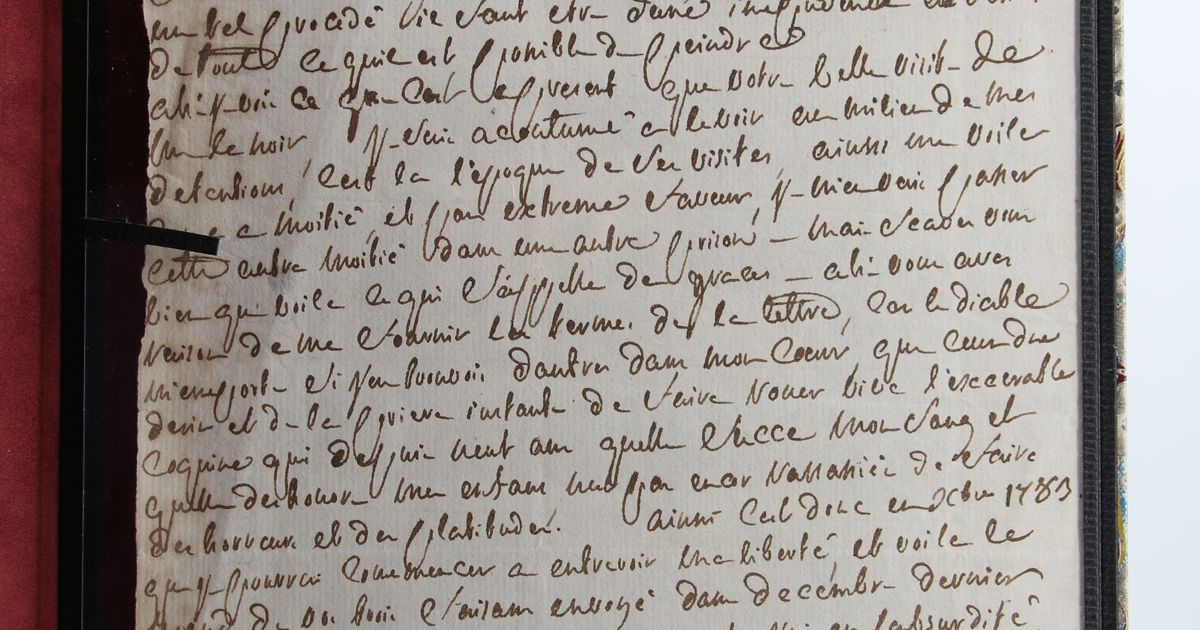 un tel procédé
de toute ce quil est possible de peindre
ah j voic ce que cest apresent que votre belle visite de
lun le noir, j etais acoutumé a le voir au milieu de mes
detentions, cest la l'époque de ses visites, ainsi une voila
a moitié, et par extreme faveur, j vien dois passer
cette autre moitié dans une autre prison — mais scaves vous
bien que voila ce qui s'appelle des graces — ah vous aves
raison de me fournir les termes de la lettre, car le diable
m'emporte si j'en trouvois dautres dans mon coeur, que ceux du
desir et de la priere instante de faire rouer vive l'execrable
coquine qui depuis neuf ans quelle succe mon sang et
quelle deshonore mes enfans nest pas encor rassasiée de faire
des horreurs et des platitudes. ainsi cest donc en xbre 1783
que j pourrai commencer a entrevoir ma liberté, et voila le
envoyé dans decembre dernier
l'absurdité